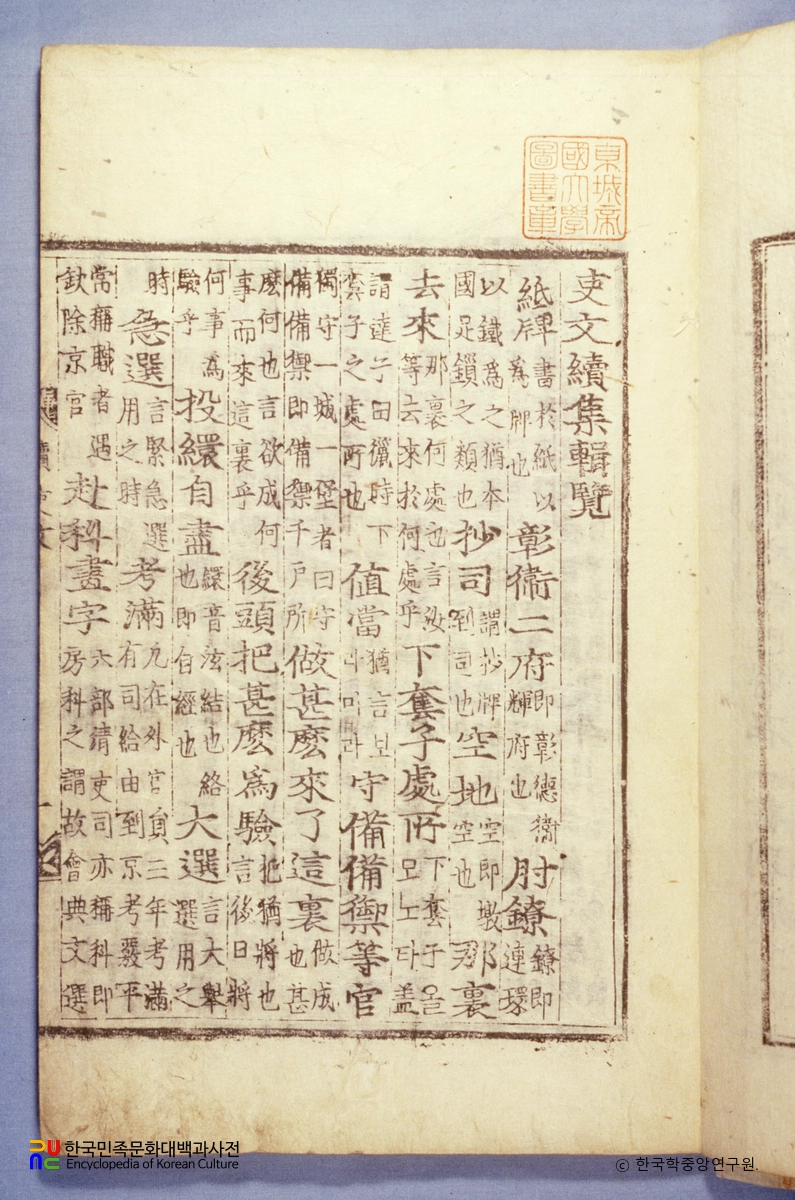 吏文續集輯覽
紙牌 書於紙以爲牌也 彰衛二府 即彰德衛輝府也 肘鐐 鐐即連環
以鐵爲之猶本國足鎖之類也 抄司 謂抄牌到司也 空地 空即墩空也 那裏
去來 那裏何處也言汝等去來於何處乎 下套子處所 下套子올모노타盖
謂達子田獵時下套子之處所也 値當 猶言보라미라 守備備禦等官
獨守一城一堡者曰守備備禦即備禦千戶所 做甚麽來了這裏 做成也甚
麽何也言欲成何事而來這裏乎 後頭把甚麽爲驗 把猶將也言後日將
何事爲驗乎 投繯自盡 繯音泫結也絡也即自經也 大選 言大擧選用之
時 急選 言緊急選用之時 考滿 凡在外官員三年考滿有司給由到京考覈平
常稱職者遇欽除京官 赴科畫字 六部淸吏司亦稱科即房科之謂故會典文選
東城帝國大學圖書章
한국민족문화대백과사전
Encyclopedia of Korean Culture
ⓒ 한국학중앙연구원.